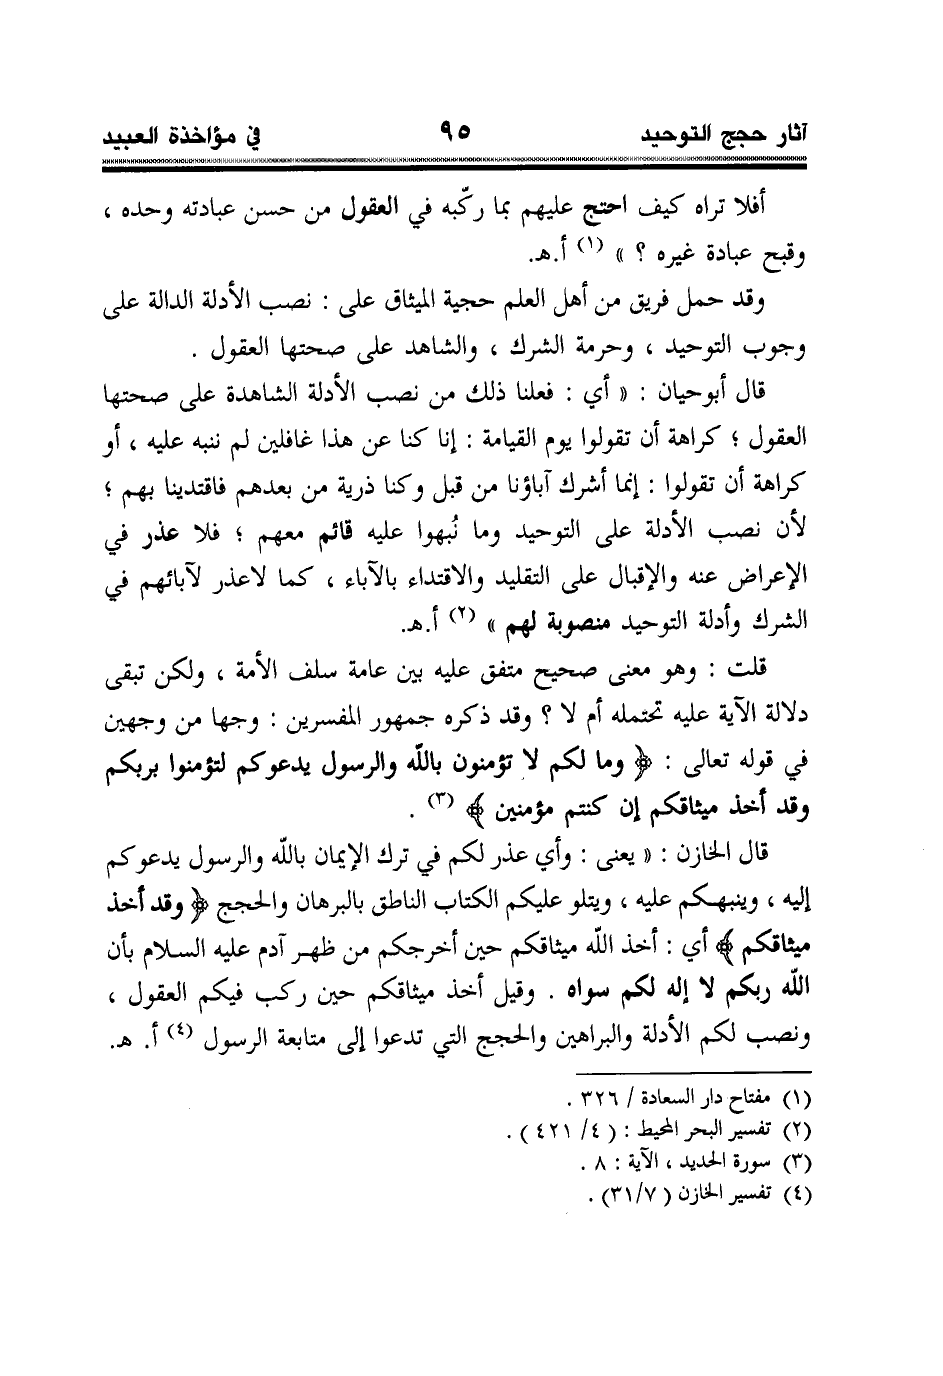 آثار حجج التوحيد ٩٥ في مؤاخذة العبيد
أفلا تراه كيف احتج عليهم بما ركّبه في العقول من حسن عبادته وحده ،
وقبح عبادة غيره ؟ » (١) أ.هـ.
وقد حمل فريق من أهل العلم حجية الميثاق على : نصب الأدلة الدالة على
وجوب التوحيد ، وحرمة الشرك ، والشاهد على صحتها العقول .
قال أبوحيان : « أي : فعلنا ذلك من نصب الأدلة الشاهدة على صحتها
العقول ؛ كراهة أن تقولوا يوم القيامة : إنا كنا عن هذا غافلين لم ننبه عليه ، أو
كراهة أن تقولوا : إنما أشرك آباؤنا من قبل وكنا ذرية من بعدهم فاقتدينا بهم ؛
لأن نصب الأدلة على التوحيد وما نُبهوا عليه قائم معهم ؛ فلا عذر في
الإعراض عنه والإقبال على التقليد والاقتداء بالآباء ، كما لاعذر لآبائهم في
الشرك وأدلة التوحيد منصوبة لهم » (٢) أ.هـ.
قلت : وهو معنى صحيح متفق عليه بين عامة سلف الأمة ، ولكن تبقى
دلالة الآية عليه تحتمله أم لا ؟ وقد ذكره جمهور المفسرين : وجها من وجهين
في قوله تعالى : ﴿ وما لكم لا تؤمنون بالله والرسول يدعوكم لتؤمنوا بربكم
وقد أخذ ميثاقكم إن كنتم مؤمنين ﴾ (٣) .
قال الخازن : « يعنى : وأي عذر لكم في ترك الإيمان بالله والرسول يدعوكم
إليه ، وينبهكم عليه ، ويتلو عليكم الكتاب الناطق بالبرهان والحجج ﴿ وقد أخذ
ميثاقكم ﴾ أي : أخذ الله ميثاقكم حين أخرجكم من ظهر آدم عليه السلام بأن
الله ربكم لا إله لكم سواه . وقيل أخذ ميثاقكم حين ركب فيكم العقول ،
ونصب لكم الأدلة والبراهين والحجج التي تدعوا إلى متابعة الرسول (٤) أ. هـ.
(١) مفتاح دار السعادة / ٣٢٦ .
(٢) تفسير البحر المحيط : ( ٤/ ٤٢١ ) .
(٣) سورة الحديد ، الآية : ٨ .
(٤) تفسير الخازن ( ٣١/٧) .